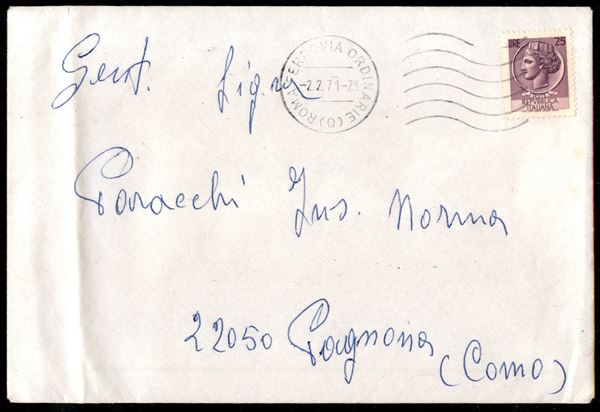 LIRE 25
REPUBBLICA
ITALIANA
ROMA FERROVIA ORDINARIE (O)
-2.2.71-21
Gent. Sig.ra
Paracchi Ins. Norma
22050 Pagnona (Como)